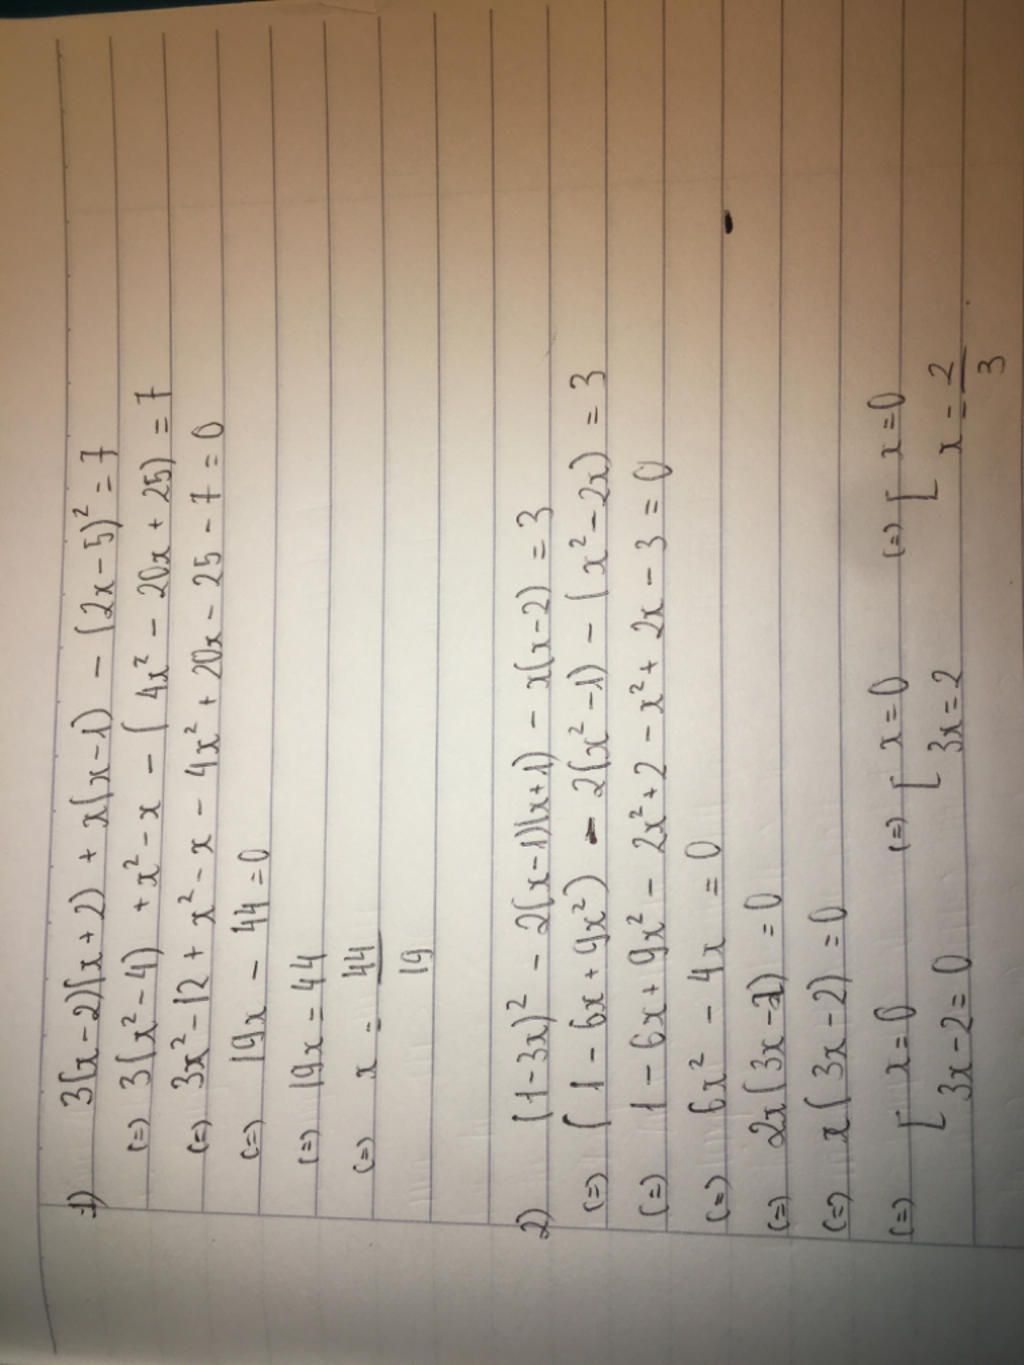 1) 3(x-2)(x+2) + x(x-1) - (2x-5)² = 7
(=) 3(x²-4) + x² - x - (4x² - 20x + 25) = 7
(=) 3x² - 12 + x² - x - 4x² + 20x - 25 - 7 = 0
(=) 19x - 44 = 0
(=) 19x = 44
(=) x = 44/19
2) (1-3x)² - 2(x-1)(x+1) - x(x-2) = 3
(=) (1 - 6x + 9x²) - 2(x²-1) - (x²-2x) = 3
(=) 1 - 6x + 9x² - 2x² + 2 - x² + 2x - 3 = 0
(=) 6x² - 4x = 0
(=) 2x(3x-2) = 0
(=) x(3x-2) = 0
(=) [ x=0 (=) [ x=0 (=) [ x=0
3x-2=0 3x=2 x = 2/3